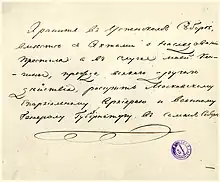 Хранить въ Успенскомъ Соборѣ,
вмѣстѣ съ Актами о Наслѣдованіи
Престола а въ случаѣ моей кон-
чины, прежде всякаго другаго
дѣйствія, раскрыть Московскому
Епархіальному Архіерею и военному
Генералу Губернатору въ самомъ Соборѣ.